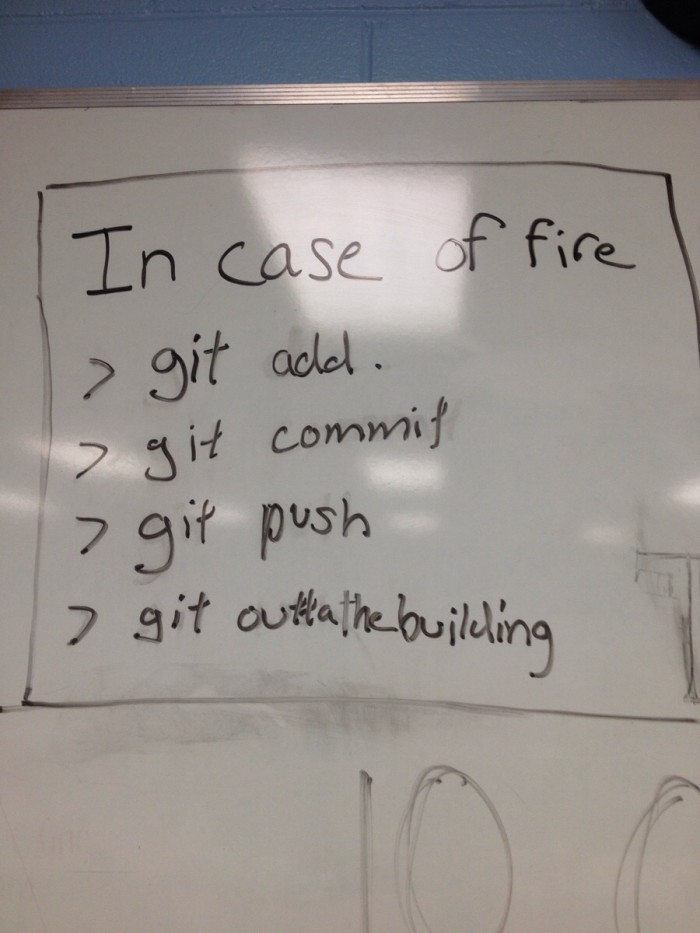 In case of fire
> git add .
> git commit
> git push
> git outtathebuilding
10